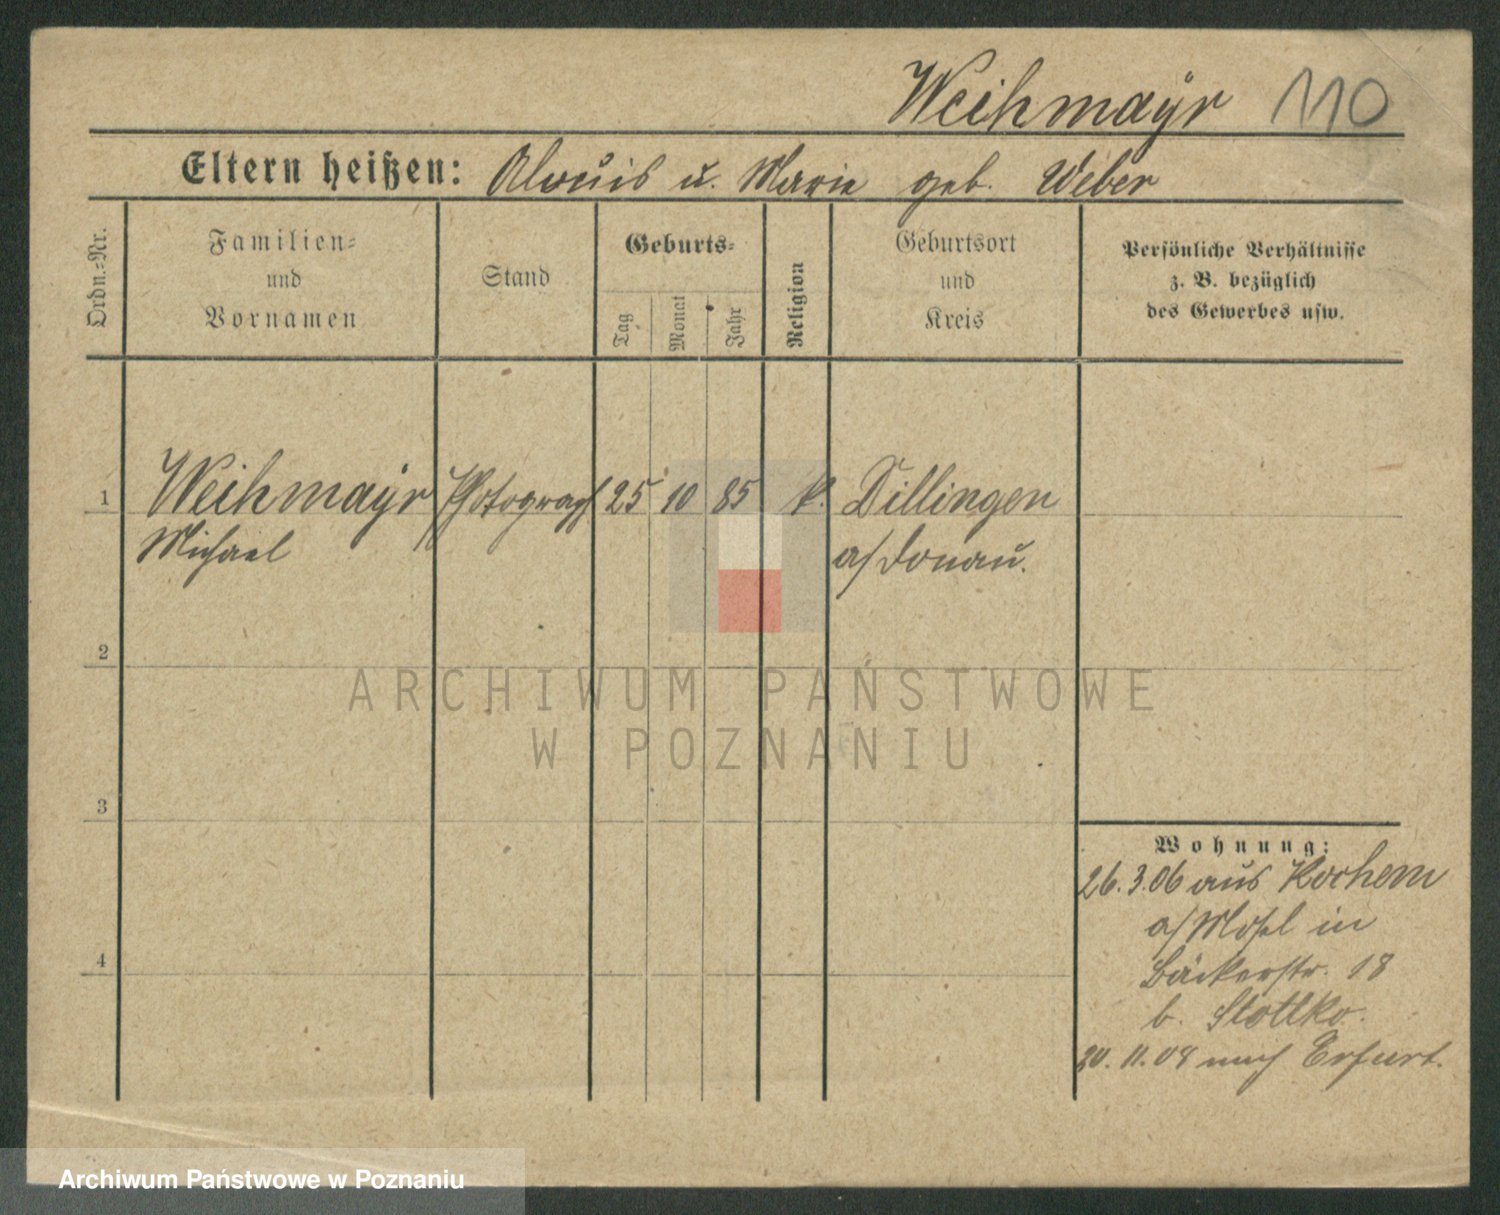 Weihmayr 110
Eltern heißen: Alouis u. Marie geb. Weber
Ordn.-Nr.
Familien-
und
Vornamen
Stand
Geburts-
Tag
Monat
Jahr
Religion
Geburtsort
und
Kreis
Persönliche Verhältnisse
z. B. bezüglich
des Gewerbes usw.
1 Weihmayr Photograph 25 10 85 k. Dillingen
Michael a/Donau.
2
ARCHIWUM PAŃSTWOWE
W POZNANIU
3
Wohnung:
26.3.06 aus Kochem
a/Mosel in
4
Bäckerstr. 18
b. Stottko.
11.08 nach Erfurt.
Archiwum Państwowe w Poznaniu